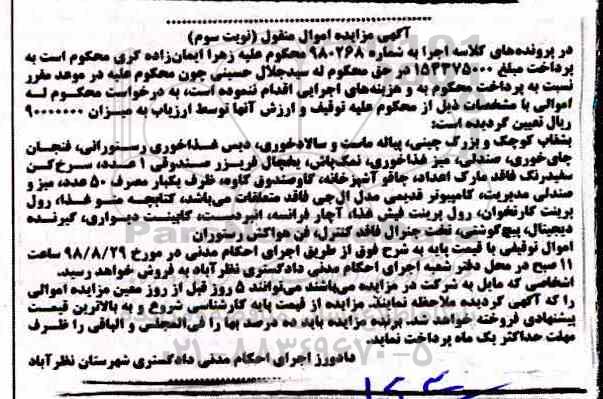 آگهی مزایده اموال منقول (نوبت سوم)
در پرونده‌های کلاسه اجرا به شماره ۹۸۰۲۶۸ محکوم علیه زهرا ایمان‌زاده کری محکوم است به
پرداخت مبلغ ۱۵۳۳۷۵۰۰۰ در حق محکوم له سیدجلال حسینی چون محکوم علیه در موعد مقرر
نسبت به پرداخت محکوم به و هزینه‌های اجرایی اقدام ننموده است، به درخواست محکوم له
اموالی با مشخصات ذیل از محکوم علیه توقیف و ارزش آنها توسط ارزیاب به میزان ۹۰۰۰۰۰۰۰
ریال تعیین گردیده است:
بشقاب کوچک و بزرگ چینی، پیاله ماست و سالادخوری، دیس غذاخوری رستورانی، فنجان
چای‌خوری، صندلی، میز غذاخوری، نمک‌پاش، یخچال فریزر صندوقی ۱ عدد، سرخ‌کن
سفیدرنگ فاقد مارک اعداد، چاقو آشپزخانه، گاوصندوق کاوه، ظرف یکبار مصرف ۵۰ عدد، میز و
صندلی مدیریت، کامپیوتر قدیمی مدل ال‌جی فاقد متعلقات می‌باشد، کتابچه منو غذا، رول
پرینت کارتخوان، رول پرینت فیش غذا، آچار فرانسه، انبردست، کابینت دیواری، گیرنده
دیجیتال، پیچ‌گوشتی، تخت جنرال فاقد کنترل، فن هواکش رستوران
اموال توقیفی با قیمت پایه به شرح فوق از طریق اجرای احکام مدنی در مورخ ۹۸/۸/۲۹ ساعت
۱۱ صبح در محل دفتر شعبه اجرای احکام مدنی دادگستری نظرآباد به فروش خواهد رسید.
اشخاصی که مایل به شرکت در مزایده می‌باشند می‌توانند ۵ روز قبل از روز معین مزایده اموالی
را که آگهی گردیده ملاحظه نمایند. مزایده از قیمت پایه کارشناسی شروع و به بالاترین قیمت
پیشنهادی فروخته خواهد شد. برنده مزایده باید ده درصد بها را فی‌المجلس و الباقی را ظرف
مهلت حداکثر یک ماه پرداخت نماید.
دادورز اجرای احکام مدنی دادگستری شهرستان نظرآباد
۰۲۱-۸۸۳۴۹۶۷۰-۵